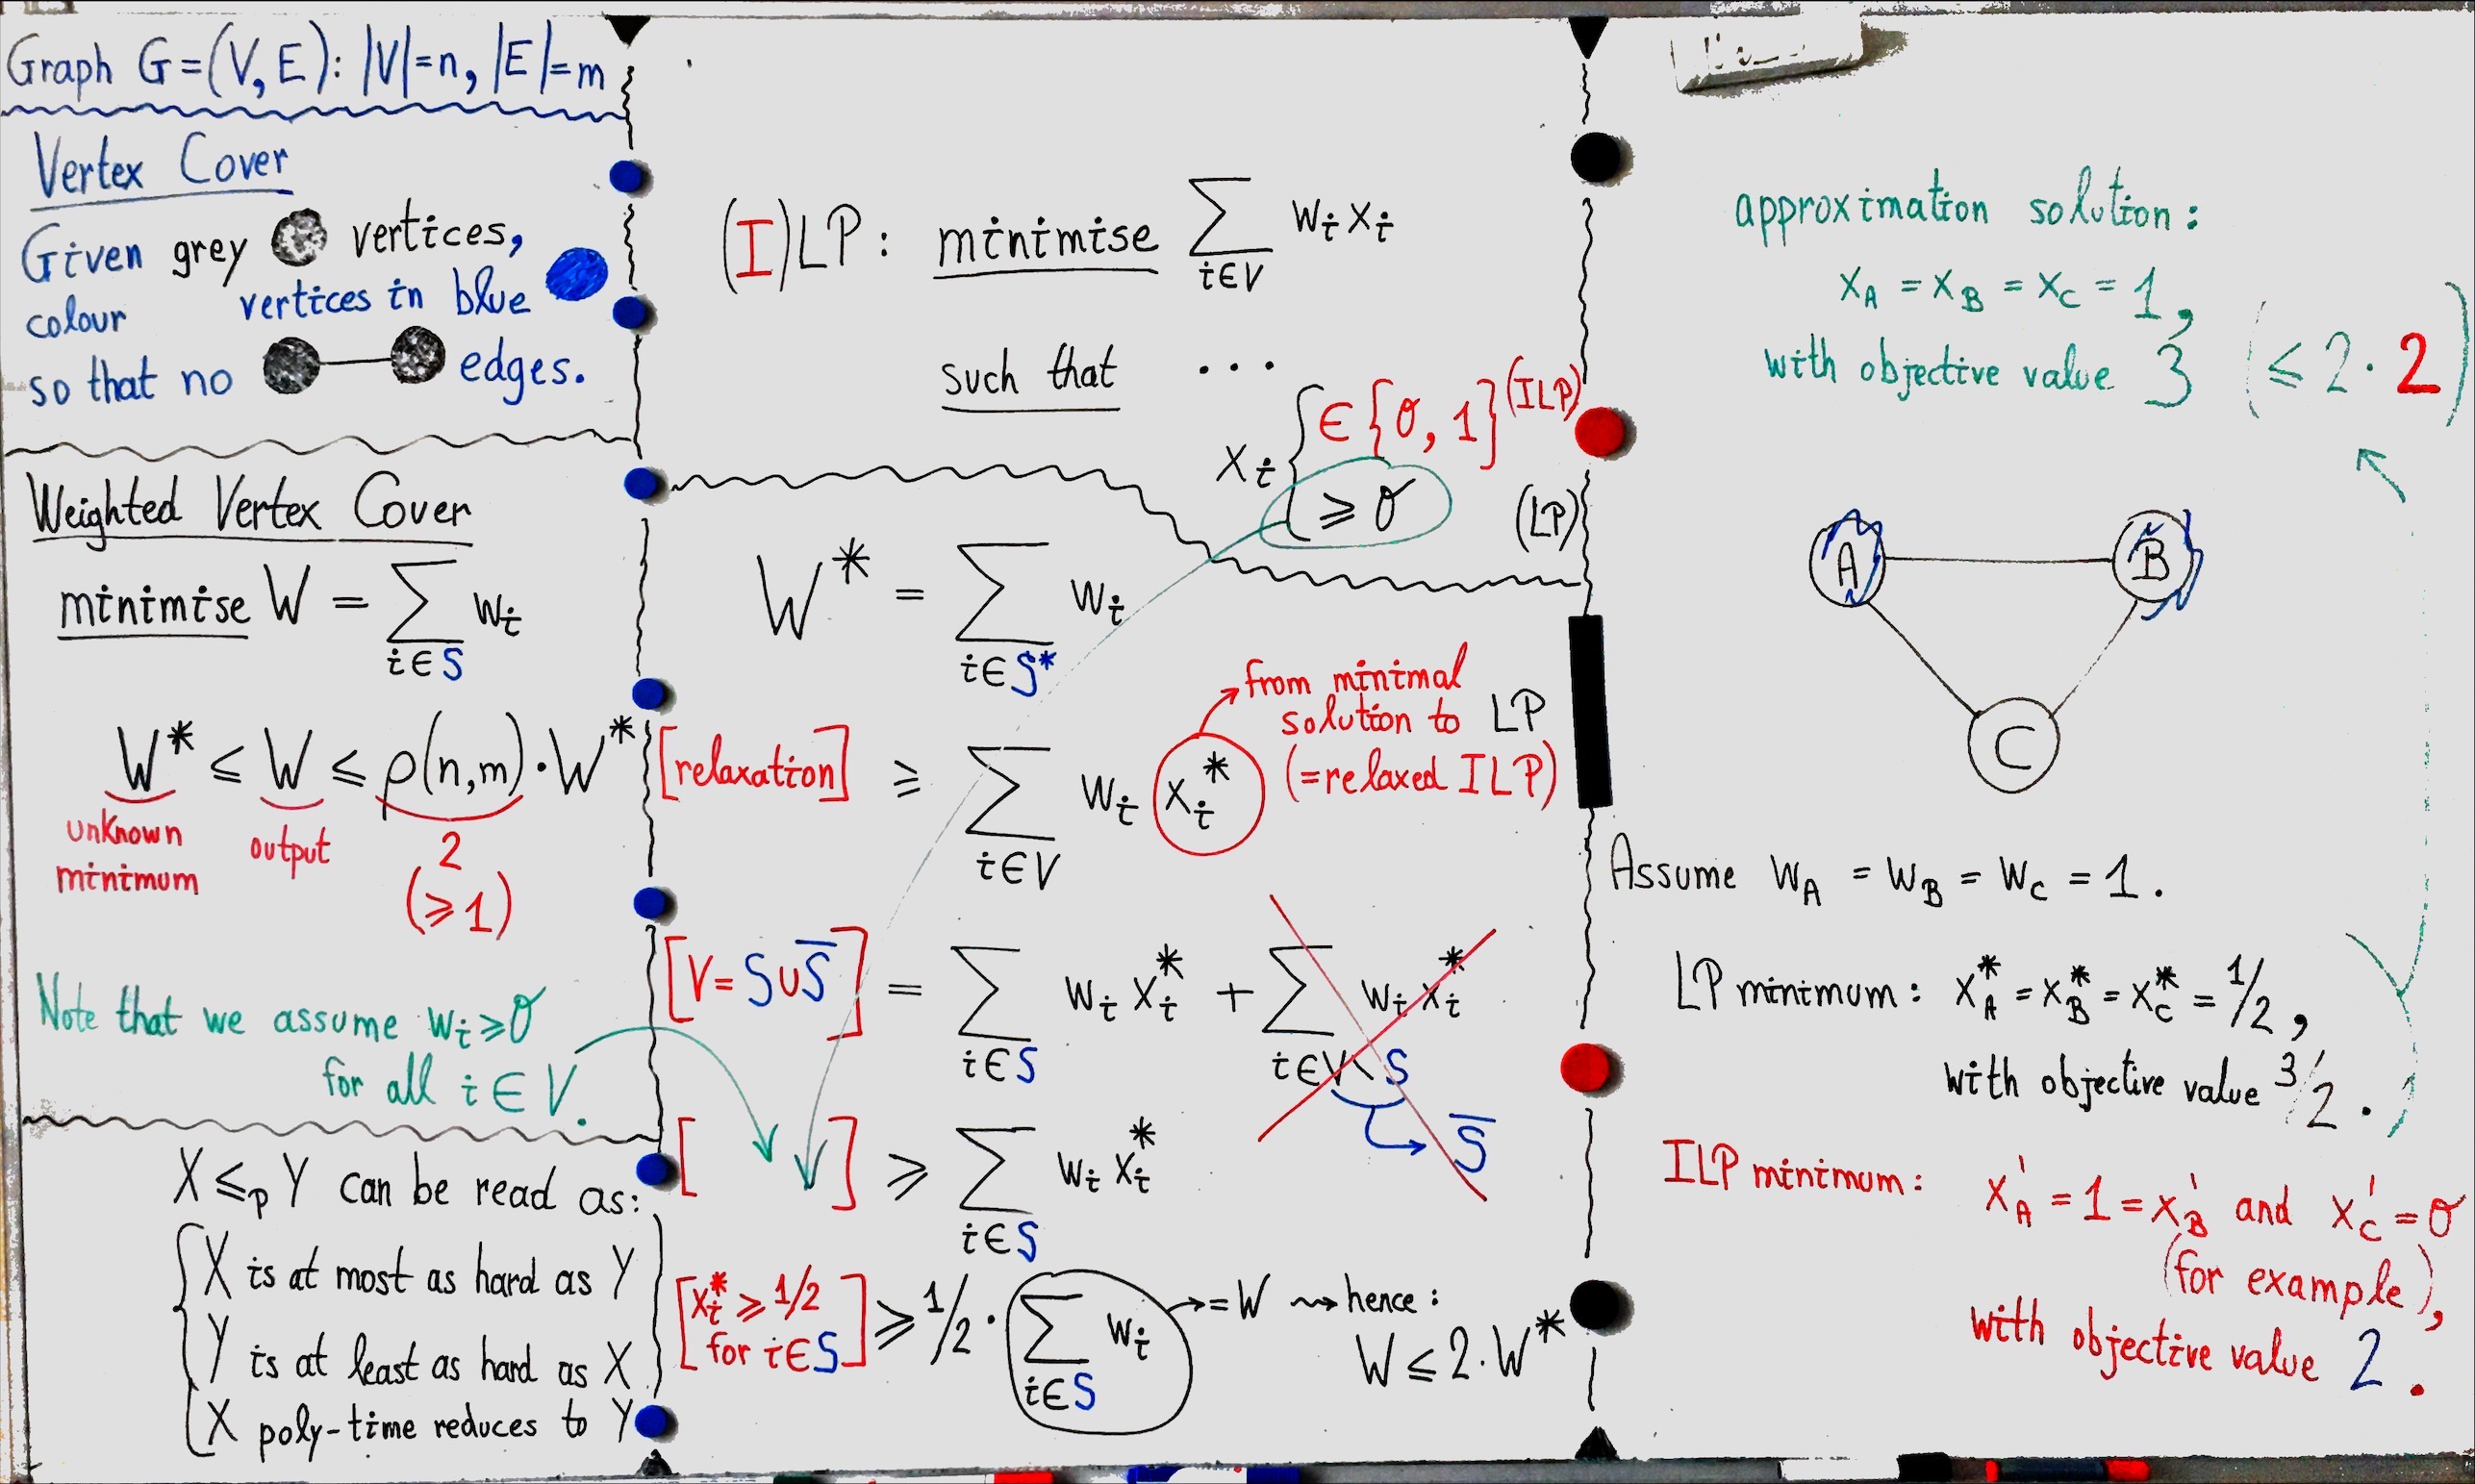 Graph G=(V,E): |V|=n, |E|=m
Vertex Cover
Given grey vertices,
colour vertices in blue
so that no edges.
Weighted Vertex Cover
minimise W = ∑ wᵢ
i∈S
W* ≤ W ≤ ρ(n,m)·W*
unknown minimum
output
2
(≥1)
Note that we assume wᵢ≥0
for all i∈V.
X ≤ₚ Y can be read as:
X is at most as hard as Y
Y is at least as hard as X
X poly-time reduces to Y
(I)LP: minimise ∑ wᵢxᵢ
i∈V
such that ...
xᵢ { ∈{0,1} (ILP)
≥0 (LP)
W* = ∑ wᵢ
i∈S*
[relaxation] ≥ ∑ wᵢ xᵢ*
i∈V
from minimal
solution to LP
(=relaxed ILP)
[V=S∪S̅] = ∑ wᵢ xᵢ* + ∑ wᵢ xᵢ*
i∈S i∈V\S
S̅
[ ] ≥ ∑ wᵢ xᵢ*
i∈S
[xᵢ* ≥ 1/2
for i∈S] ≥ 1/2 · ∑ wᵢ = W ⇝ hence:
i∈S
W ≤ 2·W*
approximation solution:
x_A = x_B = x_C = 1,
with objective value 3 (≤ 2·2)
A B
C
Assume w_A = w_B = w_C = 1.
LP minimum: x_A* = x_B* = x_C* = 1/2,
with objective value 3/2.
ILP minimum: x_A' = 1 = x_B' and x_C' = 0
(for example),
with objective value 2.